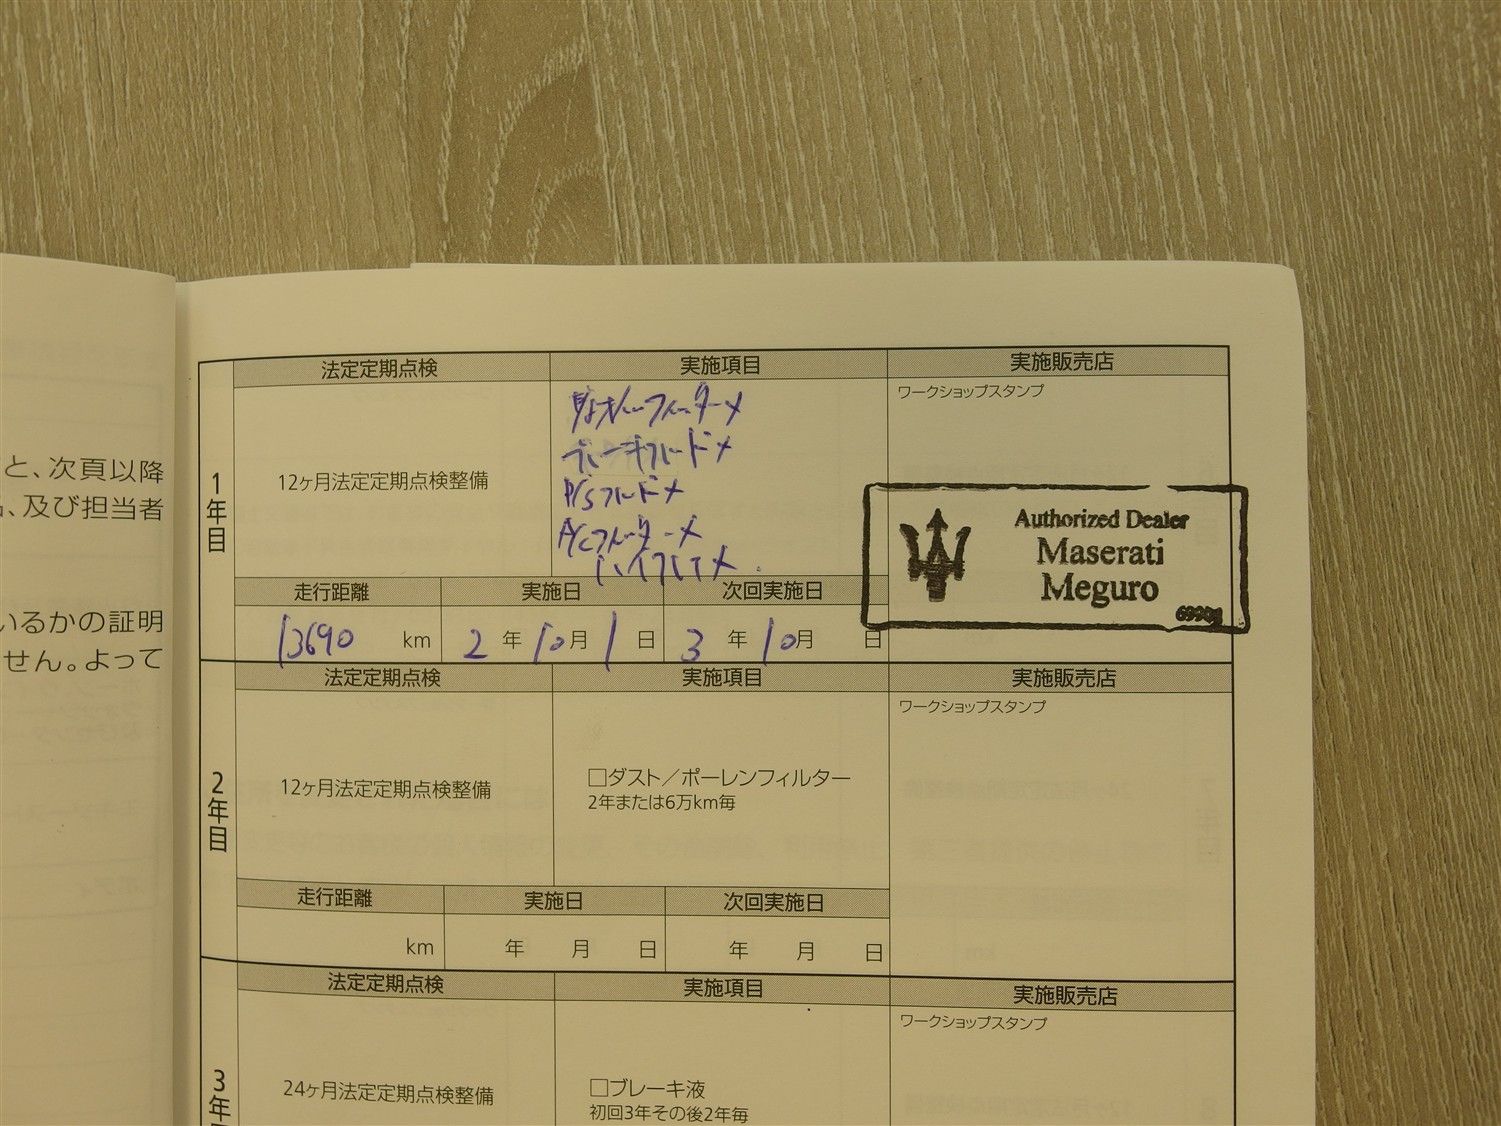 と、次頁以降
、及び担当者
いるかの証明
せん。よって
法定定期点検 実施項目 実施販売店
1年目
12ヶ月法定定期点検整備
ブレーキフルードメ
P/Sフルードメ
A/Cフィルターメ
ワークショップスタンプ
Authorized Dealer
Maserati
Meguro
走行距離 実施日 次回実施日
13690 km 2年10月1日 3年10月 日
法定定期点検 実施項目 実施販売店
2年目
12ヶ月法定定期点検整備
□ダスト/ポーレンフィルター
2年または6万km毎
ワークショップスタンプ
走行距離 実施日 次回実施日
km 年 月 日 年 月 日
法定定期点検 実施項目 実施販売店
3年
24ヶ月法定定期点検整備
□ブレーキ液
初回3年その後2年毎
ワークショップスタンプ